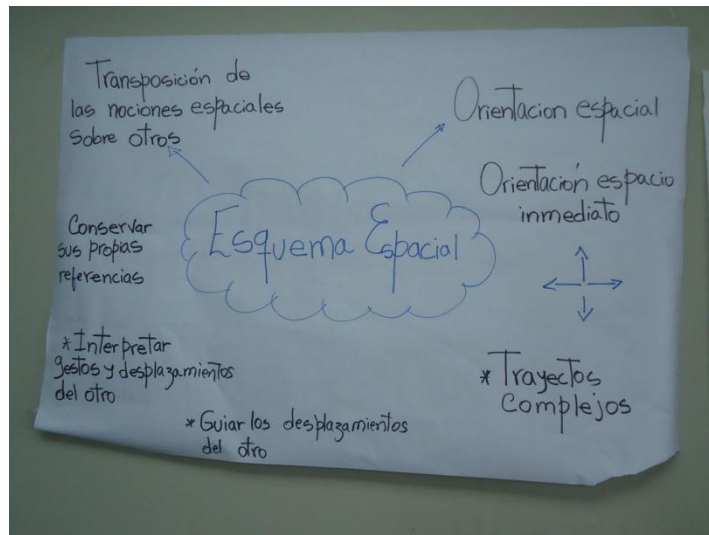 Transposición de
las nociones espaciales
sobre otros
Orientacion espacial
Orientación espacio
inmediato
Esquema Espacial
Conservar
sus propias
referencias
*Interpretar
gestos y desplazamientos
del otro
*Guiar los desplazamientos
del otro
*Trayectos
Complejos